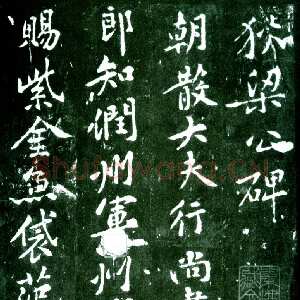 狄梁公碑
朝散大夫行尚
郎知潤州軍州
賜紫金魚袋范